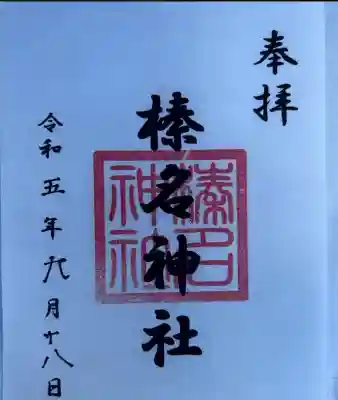 奉拝
榛名神社
榛名神社
令和五年九月十八日